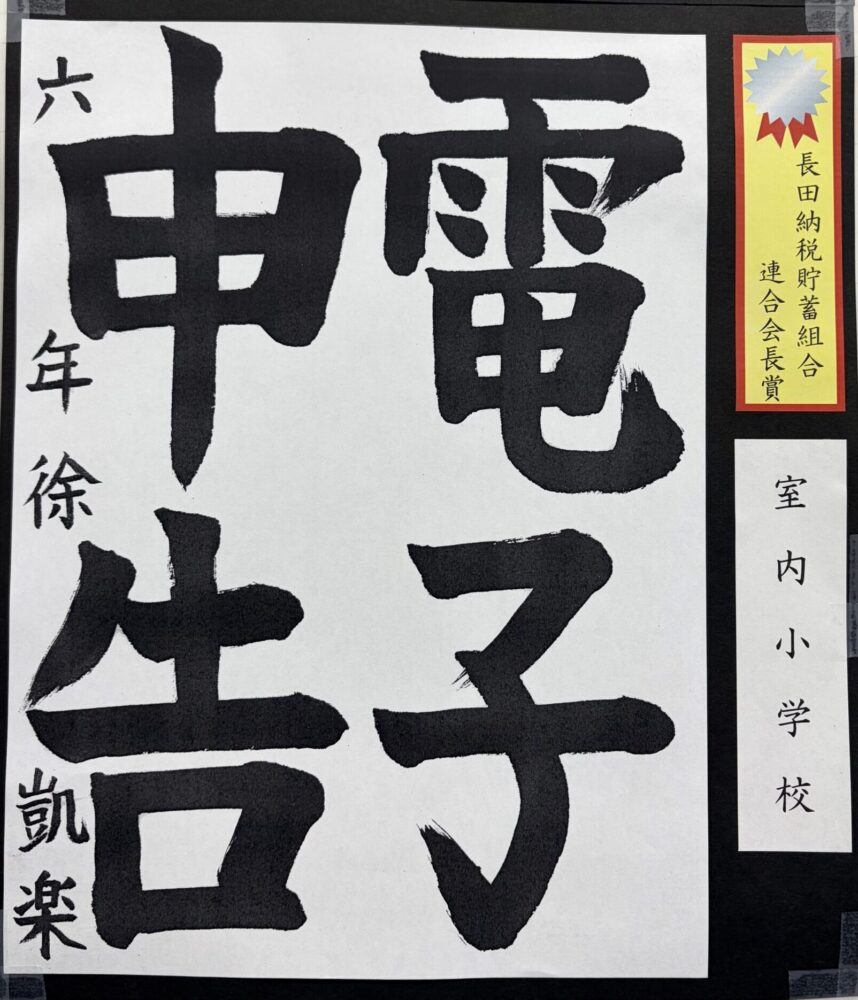 長田納税貯蓄組合
連合会長賞
室内小学校
電子
申告
六年徐凱楽